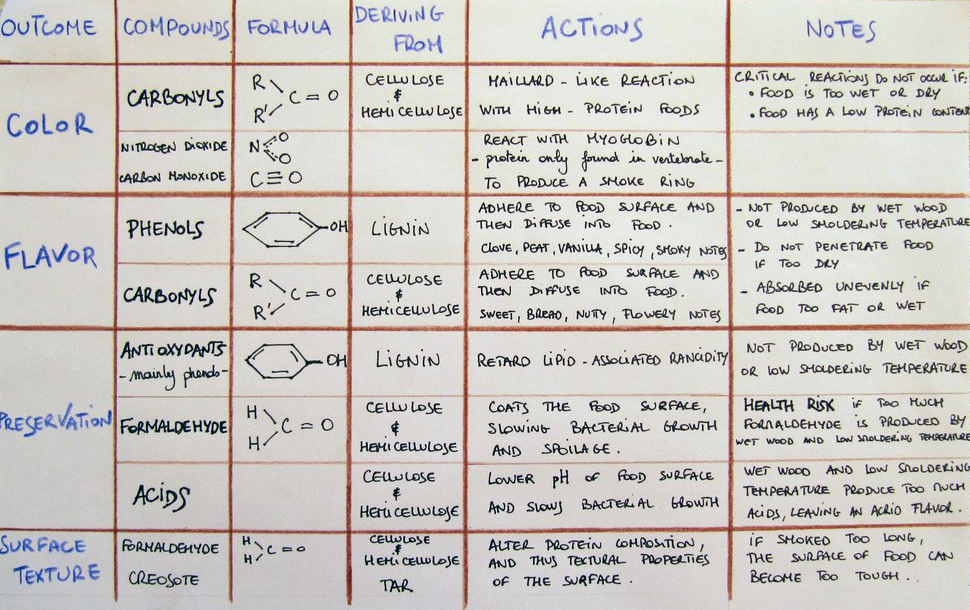 OUTCOME COMPOUNDS FORMULA DERIVING FROM ACTIONS NOTES
COLOR
CARBONYLS
R
R'
C = O
CELLULOSE
&
HEMICELLULOSE
MAILLARD - LIKE REACTION
WITH HIGH - PROTEIN FOODS
CRITICAL REACTIONS DO NOT OCCUR IF:
• FOOD IS TOO WET OR DRY
• FOOD HAS A LOW PROTEIN CONTENT
NITROGEN DIOXIDE
CARBON MONOXIDE
N
O
O
C ≡ O
REACT WITH MYOGLOBIN
- protein only found in vertebrate -
TO PRODUCE A SMOKE RING
FLAVOR
PHENOLS
OH
LIGNIN
ADHERE TO FOOD SURFACE AND
THEN DIFFUSE INTO FOOD.
CLOVE, PEAT, VANILLA, SPICY, SMOKY NOTES
- NOT PRODUCED BY WET WOOD
OR LOW SMOLDERING TEMPERATURE
- DO NOT PENETRATE FOOD
IF TOO DRY
- ABSORBED UNEVENLY IF
FOOD TOO FAT OR WET
CARBONYLS
R
R'
C = O
CELLULOSE
&
HEMICELLULOSE
ADHERE TO FOOD SURFACE AND
THEN DIFFUSE INTO FOOD.
SWEET, BREAD, NUTY, FLOWERY NOTES
PRESERVATION
ANTIOXYDANTS
- mainly phenols -
OH
LIGNIN
RETARD LIPID - ASSOCIATED RANCIDITY
NOT PRODUCED BY WET WOOD
OR LOW SMOLDERING TEMPERATURE
FORMALDEHYDE
H
H
C = O
CELLULOSE
&
HEMICELLULOSE
COATS THE FOOD SURFACE,
SLOWING BACTERIAL GROWTH
AND SPOILAGE.
HEALTH RISK IF TOO MUCH
FORMALDEHYDE IS PRODUCED BY
WET WOOD AND LOW SMOLDERING TEMPERATURE
ACIDS
CELLULOSE
&
HEMICELLULOSE
LOWER pH OF FOOD SURFACE
AND SLOWS BACTERIAL GROWTH
WET WOOD AND LOW SMOLDERING
TEMPERATURE PRODUCE TOO MUCH
ACIDS, LEAVING AN ACRID FLAVOR.
SURFACE
TEXTURE
FORMALDEHYDE
CREOSOTE
H
H
C = O
CELLULOSE
&
HEMICELLULOSE
TAR
ALTER PROTEIN COMPOSITION,
AND THUS TEXTURAL PROPERTIES
OF THE SURFACE.
IF SMOKED TOO LONG,
THE SURFACE OF FOOD CAN
BECOME TOO TOUGH..